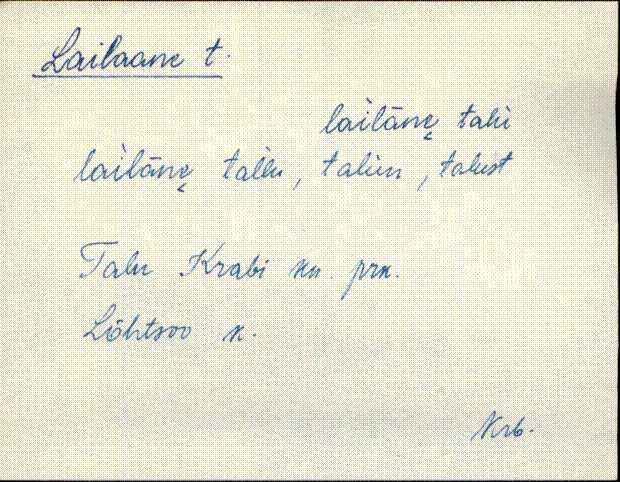 Lailaane t.
lailānę talu
lailānę tallu, talun, talust
Talu Krabi kn. prk.
Lõhtsoo k.
Krb.